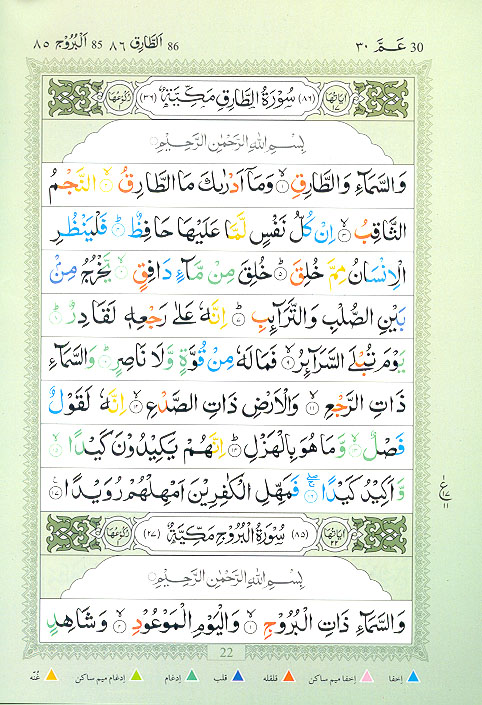 30 عَمَّ ٣٠ 86 اَلطَّارِق ٨٦ 85 اَلْبُرُوْج ٨٥
اٰيَاتُهَا ١٧ (٨٦) سُوْرَةُ الطَّارِقِ مَكِّيَّةٌ (٣٦) رُكُوْعُهَا ١
بِسْمِ اللهِ الرَّحْمٰنِ الرَّحِيْمِ
وَالسَّمَآءِ وَالطَّارِقِ ۙ‏﴿۱﴾ وَمَاۤ اَدْرٰىكَ مَا الطَّارِقُ ۙ‏﴿۲﴾ النَّجْمُ
الثَّاقِبُ ۙ‏﴿۳﴾ اِنْ كُلُّ نَفْسٍ لَّمَّا عَلَيْهَا حَافِظٌ ؕ‏﴿۴﴾ فَلْيَنْظُرِ
الْاِنْسَانُ مِمَّ خُلِقَ ؕ‏﴿۵﴾ خُلِقَ مِنْ مَّآءٍ دَافِقٍ ۙ‏﴿۶﴾ يَّخْرُجُ مِنْۢ
بَيْنِ الصُّلْبِ وَالتَّرَآئِبِ ؕ‏﴿۷﴾ اِنَّهٗ عَلٰى رَجْعِهٖ لَقَادِرٌ ؕ‏﴿۸﴾
يَوْمَ تُبْلَى السَّرَآئِرُ ۙ‏﴿۹﴾ فَمَا لَهٗ مِنْ قُوَّةٍ وَّلَا نَاصِرٍ ؕ‏﴿۱۰﴾ وَالسَّمَآءِ
ذَاتِ الرَّجْعِ ۙ‏﴿۱۱﴾ وَالْاَرْضِ ذَاتِ الصَّدْعِ ۙ‏﴿۱۲﴾ اِنَّهٗ لَقَوْلٌ
فَصْلٌ ۙ‏﴿۱۳﴾ وَّمَا هُوَ بِالْهَزْلِ ؕ‏﴿۱۴﴾ اِنَّهُمْ يَكِيْدُوْنَ كَيْدًا ۙ‏﴿۱۵﴾
وَّاَكِيْدُ كَيْدًا ۚۖ‏﴿۱۶﴾ فَمَهِّلِ الْكٰفِرِيْنَ اَمْهِلْهُمْ رُوَيْدًا ‏﴿۱۷﴾
ع ١٧ ١١
اٰيَاتُهَا ٢٢ (٨٥) سُوْرَةُ الْبُرُوْجِ مَكِّيَّةٌ (٢٧) رُكُوْعُهَا ١
بِسْمِ اللهِ الرَّحْمٰنِ الرَّحِيْمِ
وَالسَّمَآءِ ذَاتِ الْبُرُوْجِ ۙ‏﴿۱﴾ وَالْيَوْمِ الْمَوْعُوْدِ ۙ‏﴿۲﴾ وَشَاهِدٍ
22
اِخفا اِخفا میم ساکن قلقلہ قلب اِدغام اِدغام میم ساکن غُنّہ